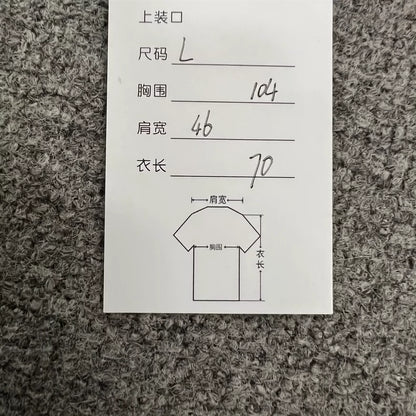 上装口
尺码 L
胸围 104
肩宽 46
衣长 70
肩宽
胸围
衣长